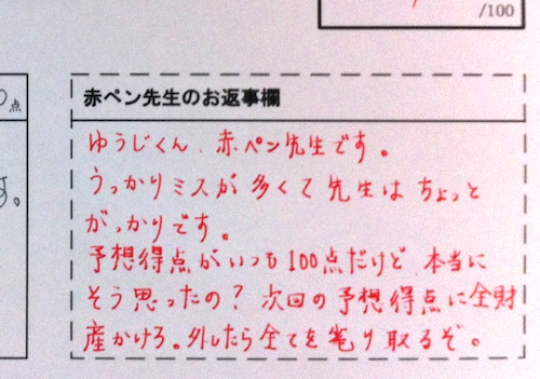 /100
点
赤ペン先生のお返事欄
ゆうじくん、赤ペン先生です。
うっかりミスが多くて先生はちょっと
がっかりです。
予想得点がいつも100点だけど、本当に
そう思ったの?次回の予想得点に全財
産かけろ。外したら全てを毟り取るぞ。